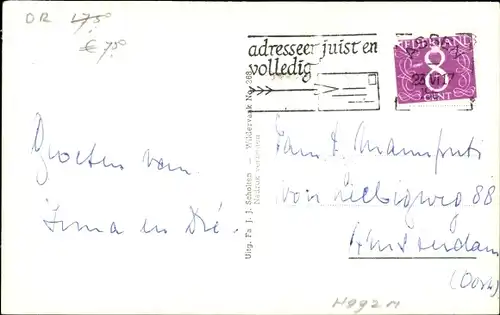 DR 1,75
€ 7,50
adresseer juist en
volledig
NEDERLAND
8
CENT
Groeten van
Irma en Dré.
Uitg. Fa J. J. Scholten — Wildervank No. 268
Nadruk verboden
Fam.
von Liebigweg 88
Amsterdam
(Oost)
H992M